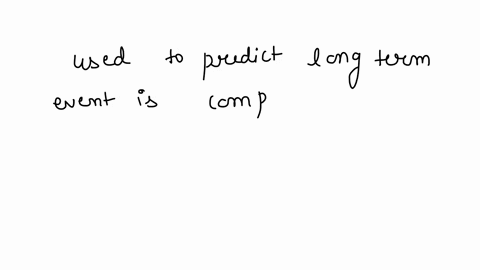 used to predict long term
event is comp